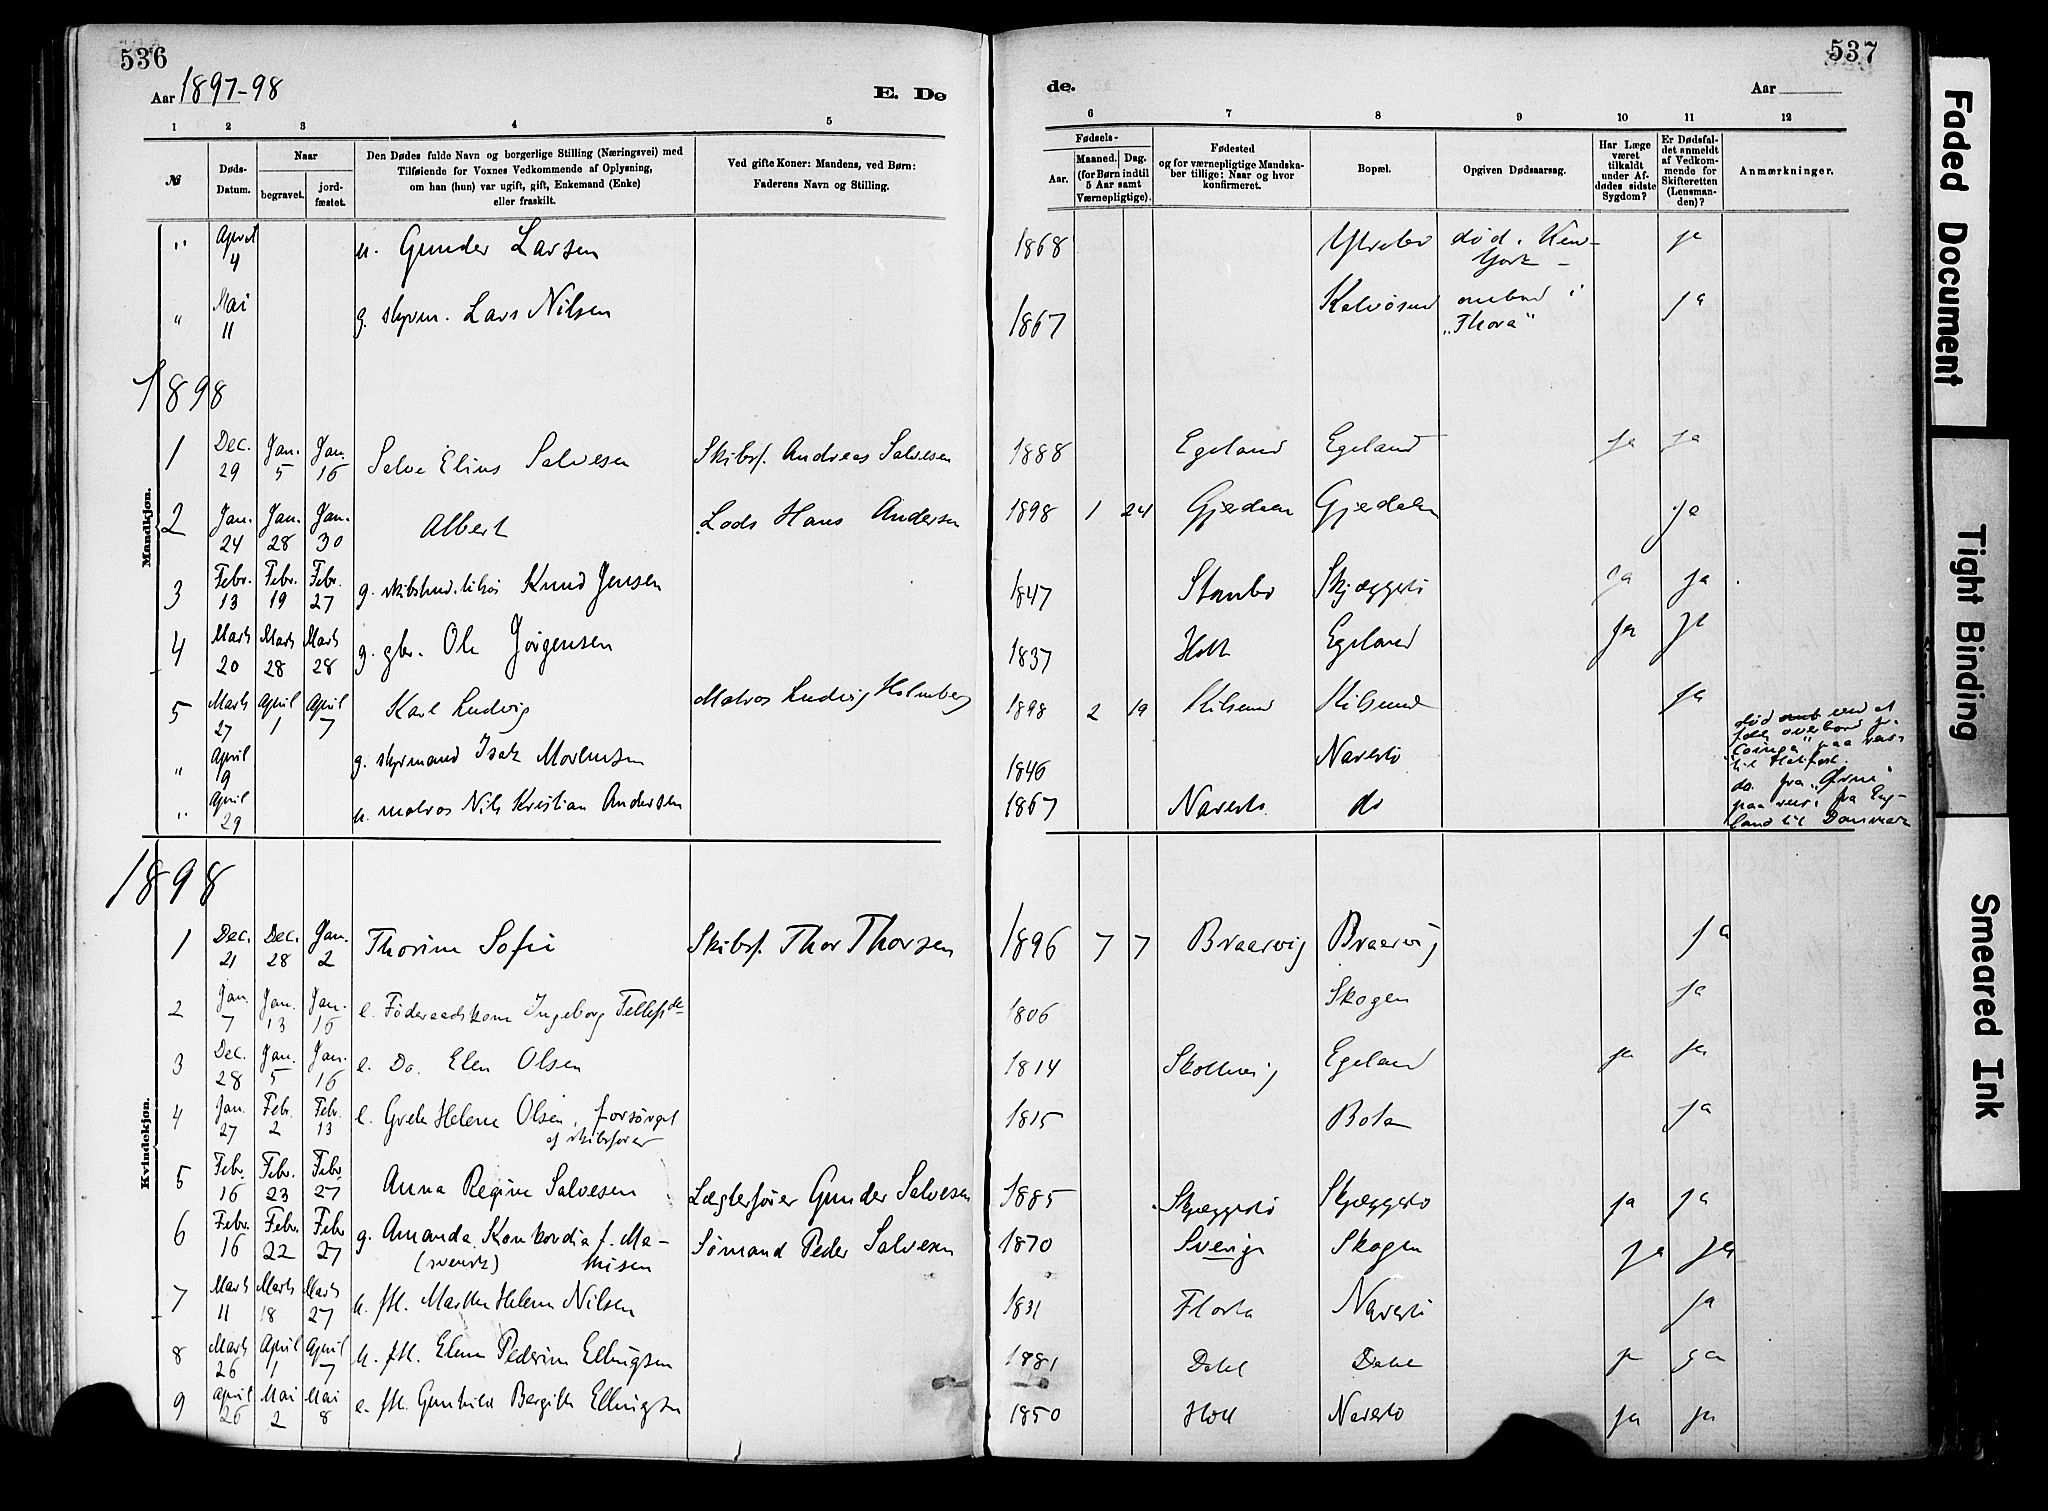 536
Aar 1897-98
E. Dø
1 2 3 4 5
№
Døds-
Datum.
Naar
begravet.
jord-
fæstet.
Den Dødes fulde Navn og borgerlige Stilling (Næringsvei) med
Tilføiende for Voxnes Vedkommende af Oplysning,
om han (hun) var ugift, gift, Enkemand (Enke)
eller fraskilt.
Ved gifte Koner: Mandens, ved Børn:
Faderens Navn og Stilling.
" April 4 u. Gunder Larsen
" Mai 11 g. styrm. Lars Nilsen
1898
Mandkjøn.
1 Dec. 29 Jan. 5 Jan. 16 Salve Elius Salvesen Skibsf. Andreas Salvesen
2 Jan. 24 Jan. 28 Jan. 30 Albert Lods Hans Andersen
3 Febr. 13 Febr. 19 Febr. 27 g. Knud Jensen
4 Marts 20 Marts 28 Marts 28 g. gbr. Ole Jørgensen
5 Marts 27 April 1 April 7 Karl Ludvig Matros Ludvig Holmberg
" April 9 g. styrmand Isak Mortensen
" April 29 u. matros Nils Kristian Andersen
1898
Kvindekjøn.
1 Dec. 21 Dec. 28 Jan. 2 Thorine Sofie Skibsf. Thor Thorsen
2 Jan. 7 Jan. 13 Jan. 16 e. Føderaadskone Ingeborg Tellefsdtr
3 Dec. 28 Jan. 5 Jan. 16 e. Do. Elen Olsen
4 Jan. 27 Febr. 2 Febr. 13 e. Grete Helene Olsen, forsørget
af skibsfører
5 Febr. 16 Febr. 23 Febr. 27 Anna Regine Salvesen Lægterfører Gunder Salvesen
6 Febr. 16 Febr. 22 Febr 27 g. Amanda Konkordia f. Ma-
(svensk) thisen
Sømand Peder Salvesen
7 Marts 11 Marts 18 Marts 27 u. fhl. Marthe Helene Nilsen
8 Marts 26 April 1 April 7 u. fhl. Elene Pederine Ellingsen
9 April 26 Mai 2 Mai 8 e. fhl. Gunhild Bergitte Ellingsen
537
de.
Aar
6 7 8 9 10 11 12
Fødsels-
Aar.
Maaned. Dag.
(for Børn indtil
5 Aar samt
Værnepligtige).
Fødested
og for værnepligtige Mandska-
ber tillige: Naar og hvor
konfirmeret.
Bopæl.
Opgiven Dødsaarsag.
Har Læge
været
tilkaldt
under Af-
dødes sidste
Sygdom?
Er Dødsfal-
det anmeldt
af Vedkom-
mende for
Skifteretten
(Lensman-
den)?
Anmærkninger.
1868 Ytrebø død i New- ja
York
1867 Kalvøsund ombord i ja
"Thora"
1888 Egeland Egeland ja ja
1898 1 24 Gjerdalen Gjerdalen ja
1847 Stanbo Skjæggestø ja ja
1837 Holt Egeland ja ja
1898 2 19 Kilsund Kilsund ja
1846 Narestø
død ved at
falde overbord fr.
paa reise
til
1867 Narestø do
do. fra "Ørnen"
paa reise fra Eng-
land til Danmark
1896 7 7 Braarvig Braarvig ja
1806 Skogen ja
1814 Skottevig Egeland ja ja
1815 Bota ja
1885 Skjæggestø Skjæggestø ja ja
1870 Sverige Skogen ja ja
1831 Flosta Narestø ja
1881 Dahl Dahl ja ja
1850 Holt Narestø ja ja
Faded Document
Tight Binding
Smeared Ink